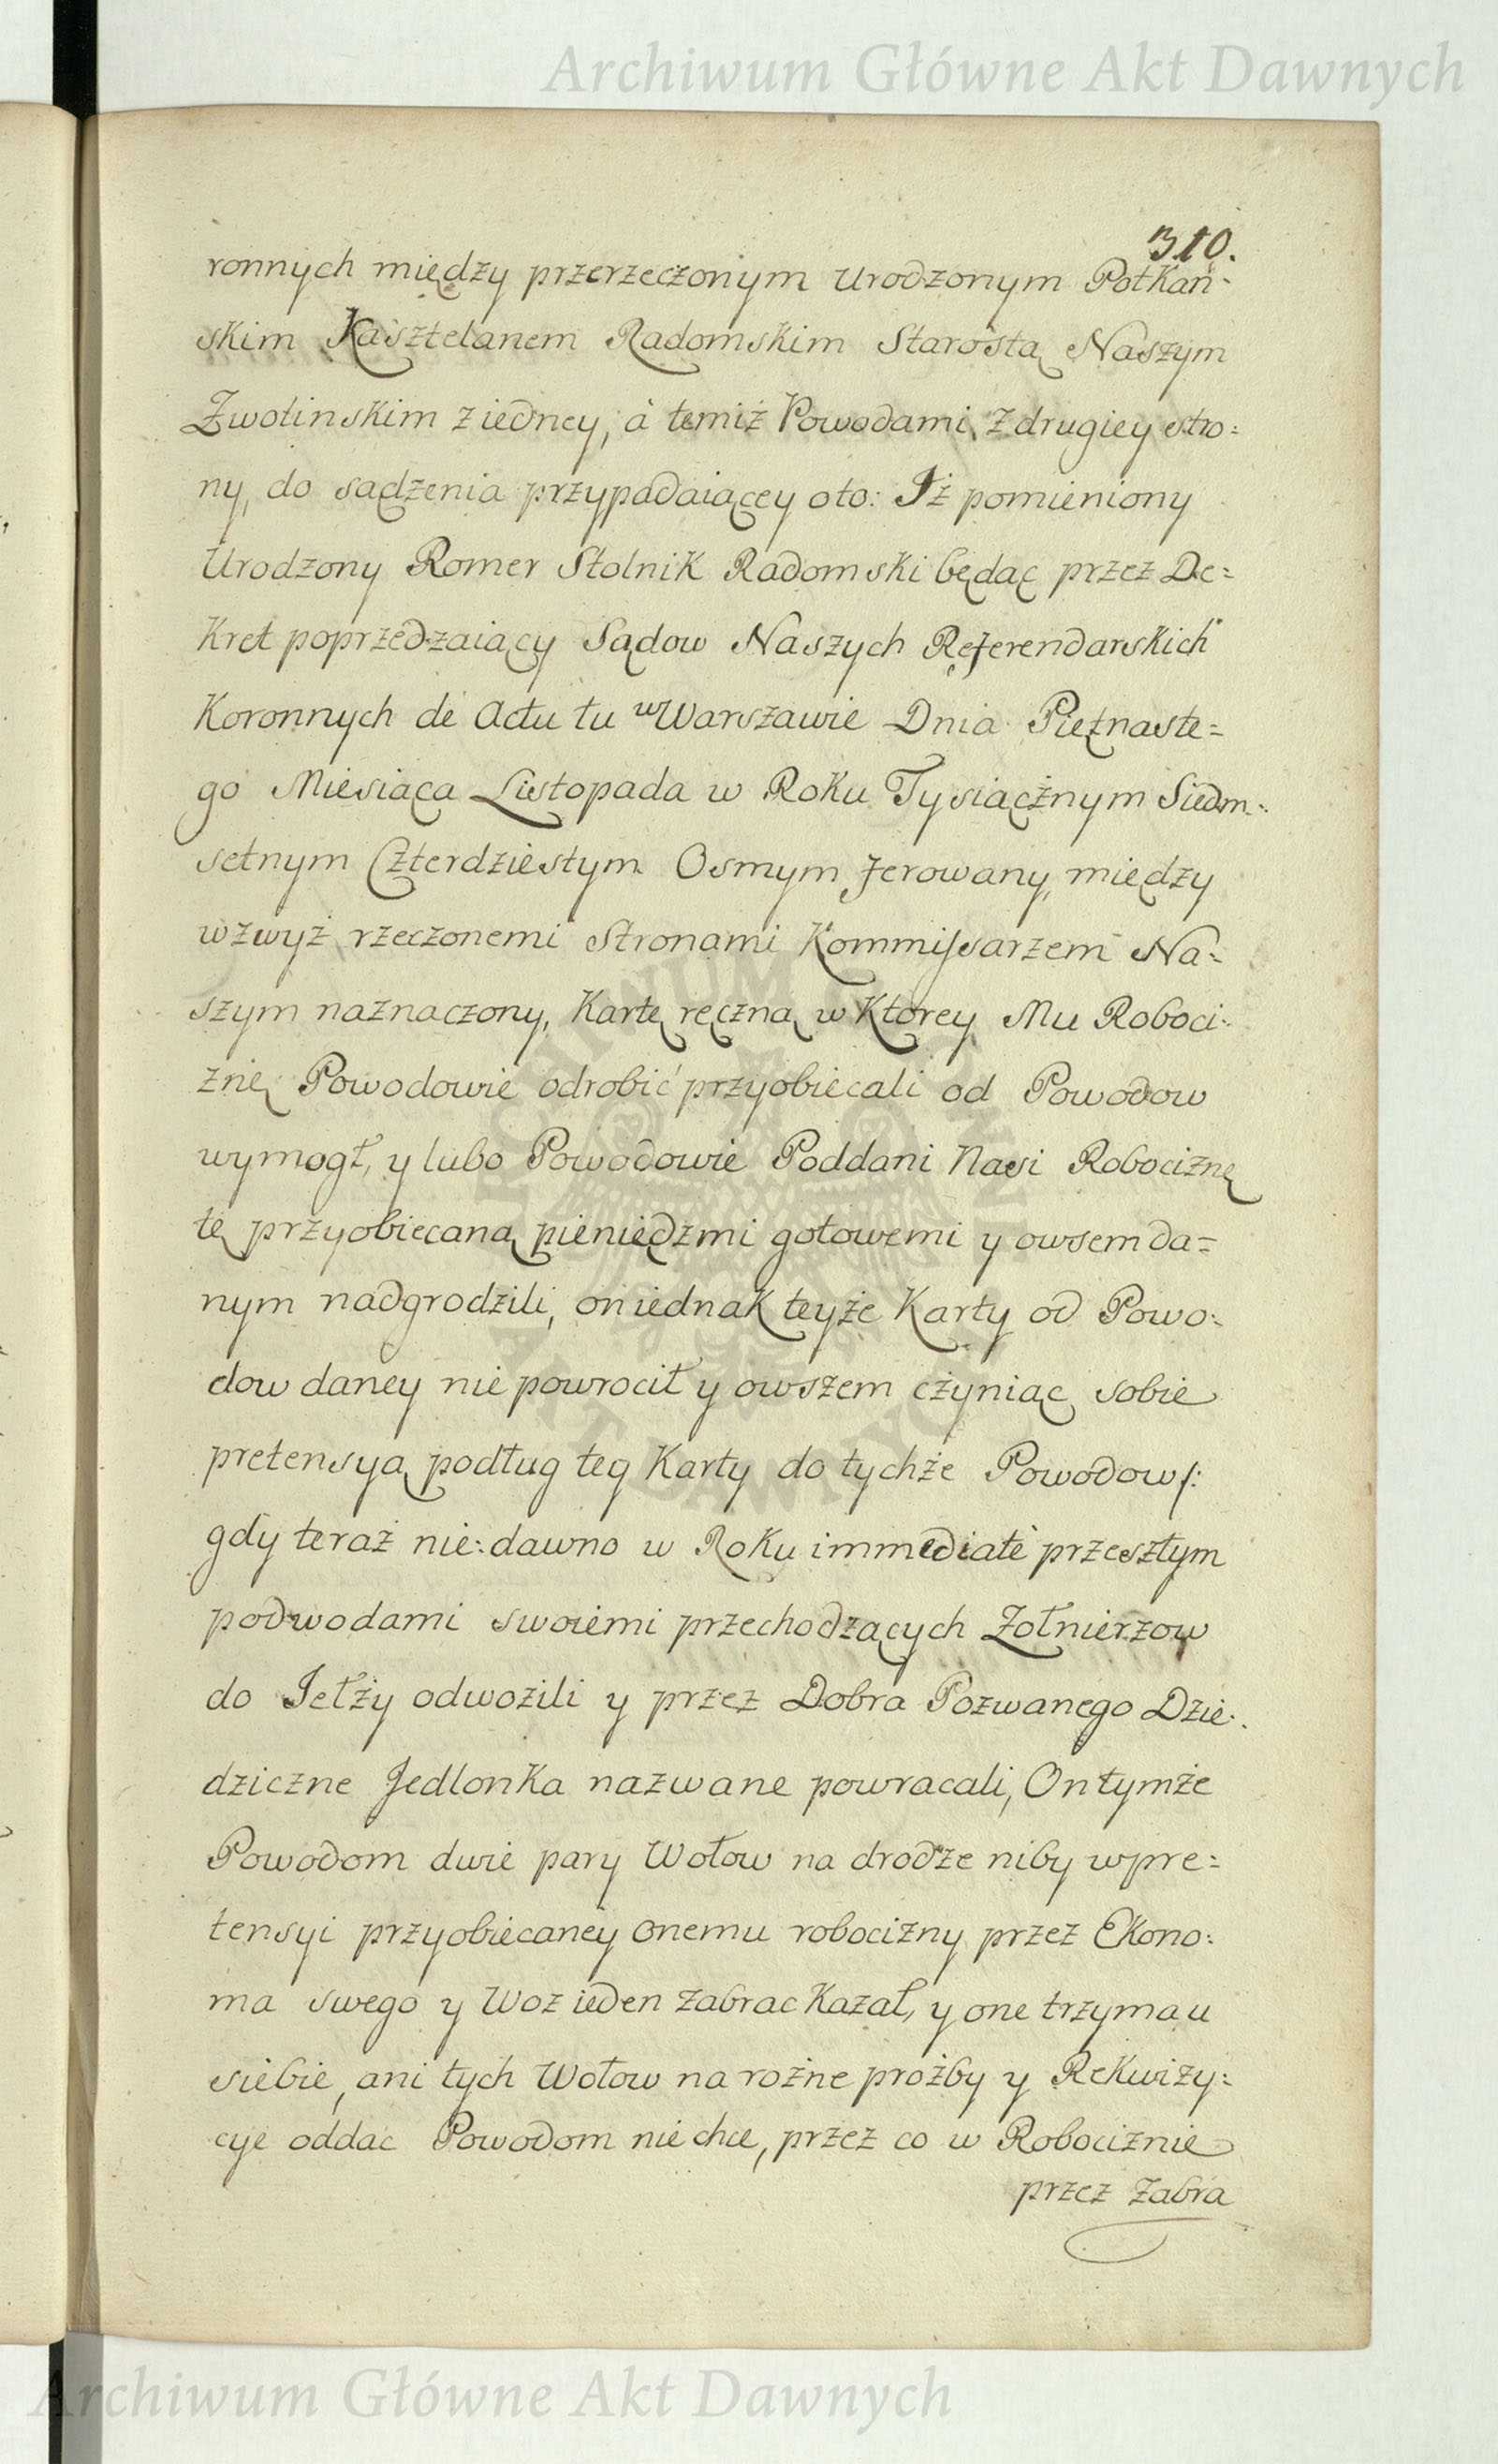 Archiwum Główne Akt Dawnych
310.
ronnych między przerzeczonym Urodzonym Potkań-
skim Kasztelanem Radomskim Starostą Naszym
Zwolinskim z iedney, à temiż Powodami, z drugiey stro=
ny, do sądzenia przypadaiącey oto: Iż pomieniony
Urodzony Romer Stolnik Radomski będąc przez De=
kret poprzedzaiący Sądow Naszych Referendarskich
Koronnych de Actu tu w Warszawie Dnia Piętnaste=
go Miesiąca Listopada w Roku Tysiącżnym Siedm-:
setnym Czterdziestym Osmym ferowany, między
wzwyż rzeczonemi Stronami Kommissarzem Na-:
szym naznaczony, Kartę ręczną w Ktorey Mu Roboci-:
znę Powodowie odrobić przyobiecali od Powodow
wymogł, y lubo Powodowie Poddani Nasi Robociznę
tę przyobiecaną pieniędzmi gotowemi y owsem da=
nym nadgrodzili, on iednak teyże Karty od Powo-:
dow daney nie powrocił y owszem cżyniąc sobie
pretensyą podług teg Karty do tychże Powodow /:
gdy teraż nie:dawno w Roku immediatè przeszłym
podwodami swoiemi przechodzących Żołnierzow
do Jełży odwozili y przez Dobra Pozwanego Dzie-:
dziczne Jedlonka nazwane powracali, On tymże
Powodom dwie pary Wołow na drodze niby w pre=
tensyi przyobiecaney onemu robocizny przez Ekono-:
ma swego y Woz ieden zabrac Kazał, y one trzyma u
siebie, ani tych Wołow na rożne prożby y Rekwizy-:
cye oddac Powodom nie chce, przez co w Robociznie
przez Zabra
Archiwum Główne Akt Dawnych